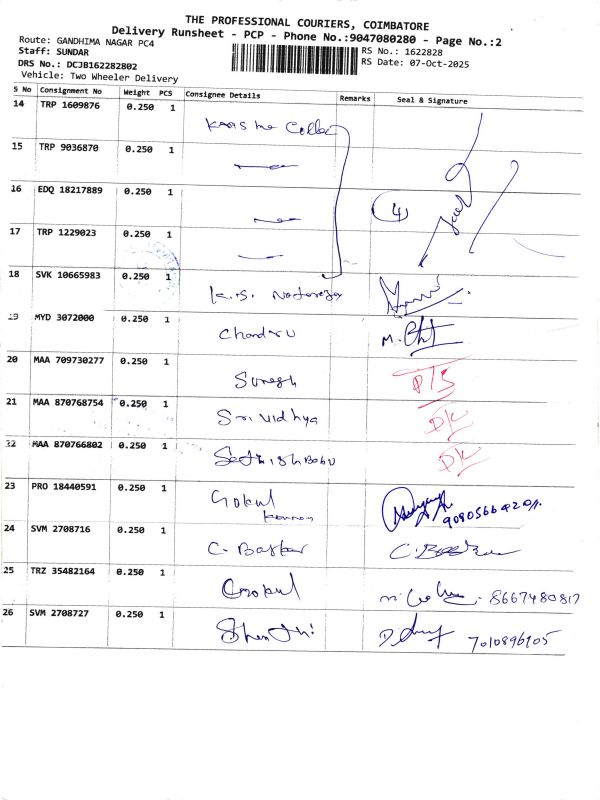 THE PROFESSIONAL COURIERS, COIMBATORE
Delivery Runsheet - PCP - Phone No.:9047080280 - Page No.:2
Route: GANDHIMA NAGAR PC4
RS No.: 1622828
Staff: SUNDAR
DRS No.: DCJB162282802
RS Date: 07-Oct-2025
Vehicle: Two Wheeler Delivery
S No Consignment No Weight PCS Consignee Details Remarks Seal & Signature
14 TRP 1609876 0.250 1
15 TRP 9036870 0.250 1
16 EDQ 18217889 0.250 1
4
17 TRP 1229023 0.250 1
18 SVK 10665983 0.250 1 K.S.
19 MYD 3072000 0.250 1 Chandru M.
20 MAA 709730277 0.250 1 Suresh D/S
21 MAA 870768754 0.250 1 Sri Vidhya D/K
22 MAA 870766802 0.250 1 Sathishbabu D/K
23 PRO 18440591 0.250 1 Gokul
Kannan
24 SVM 2708716 0.250 1 C. Basker C. Basker
25 TRZ 35482164 0.250 1 Gokul 8667480817
26 SVM 2708727 0.250 1 Shanthi 7010896105